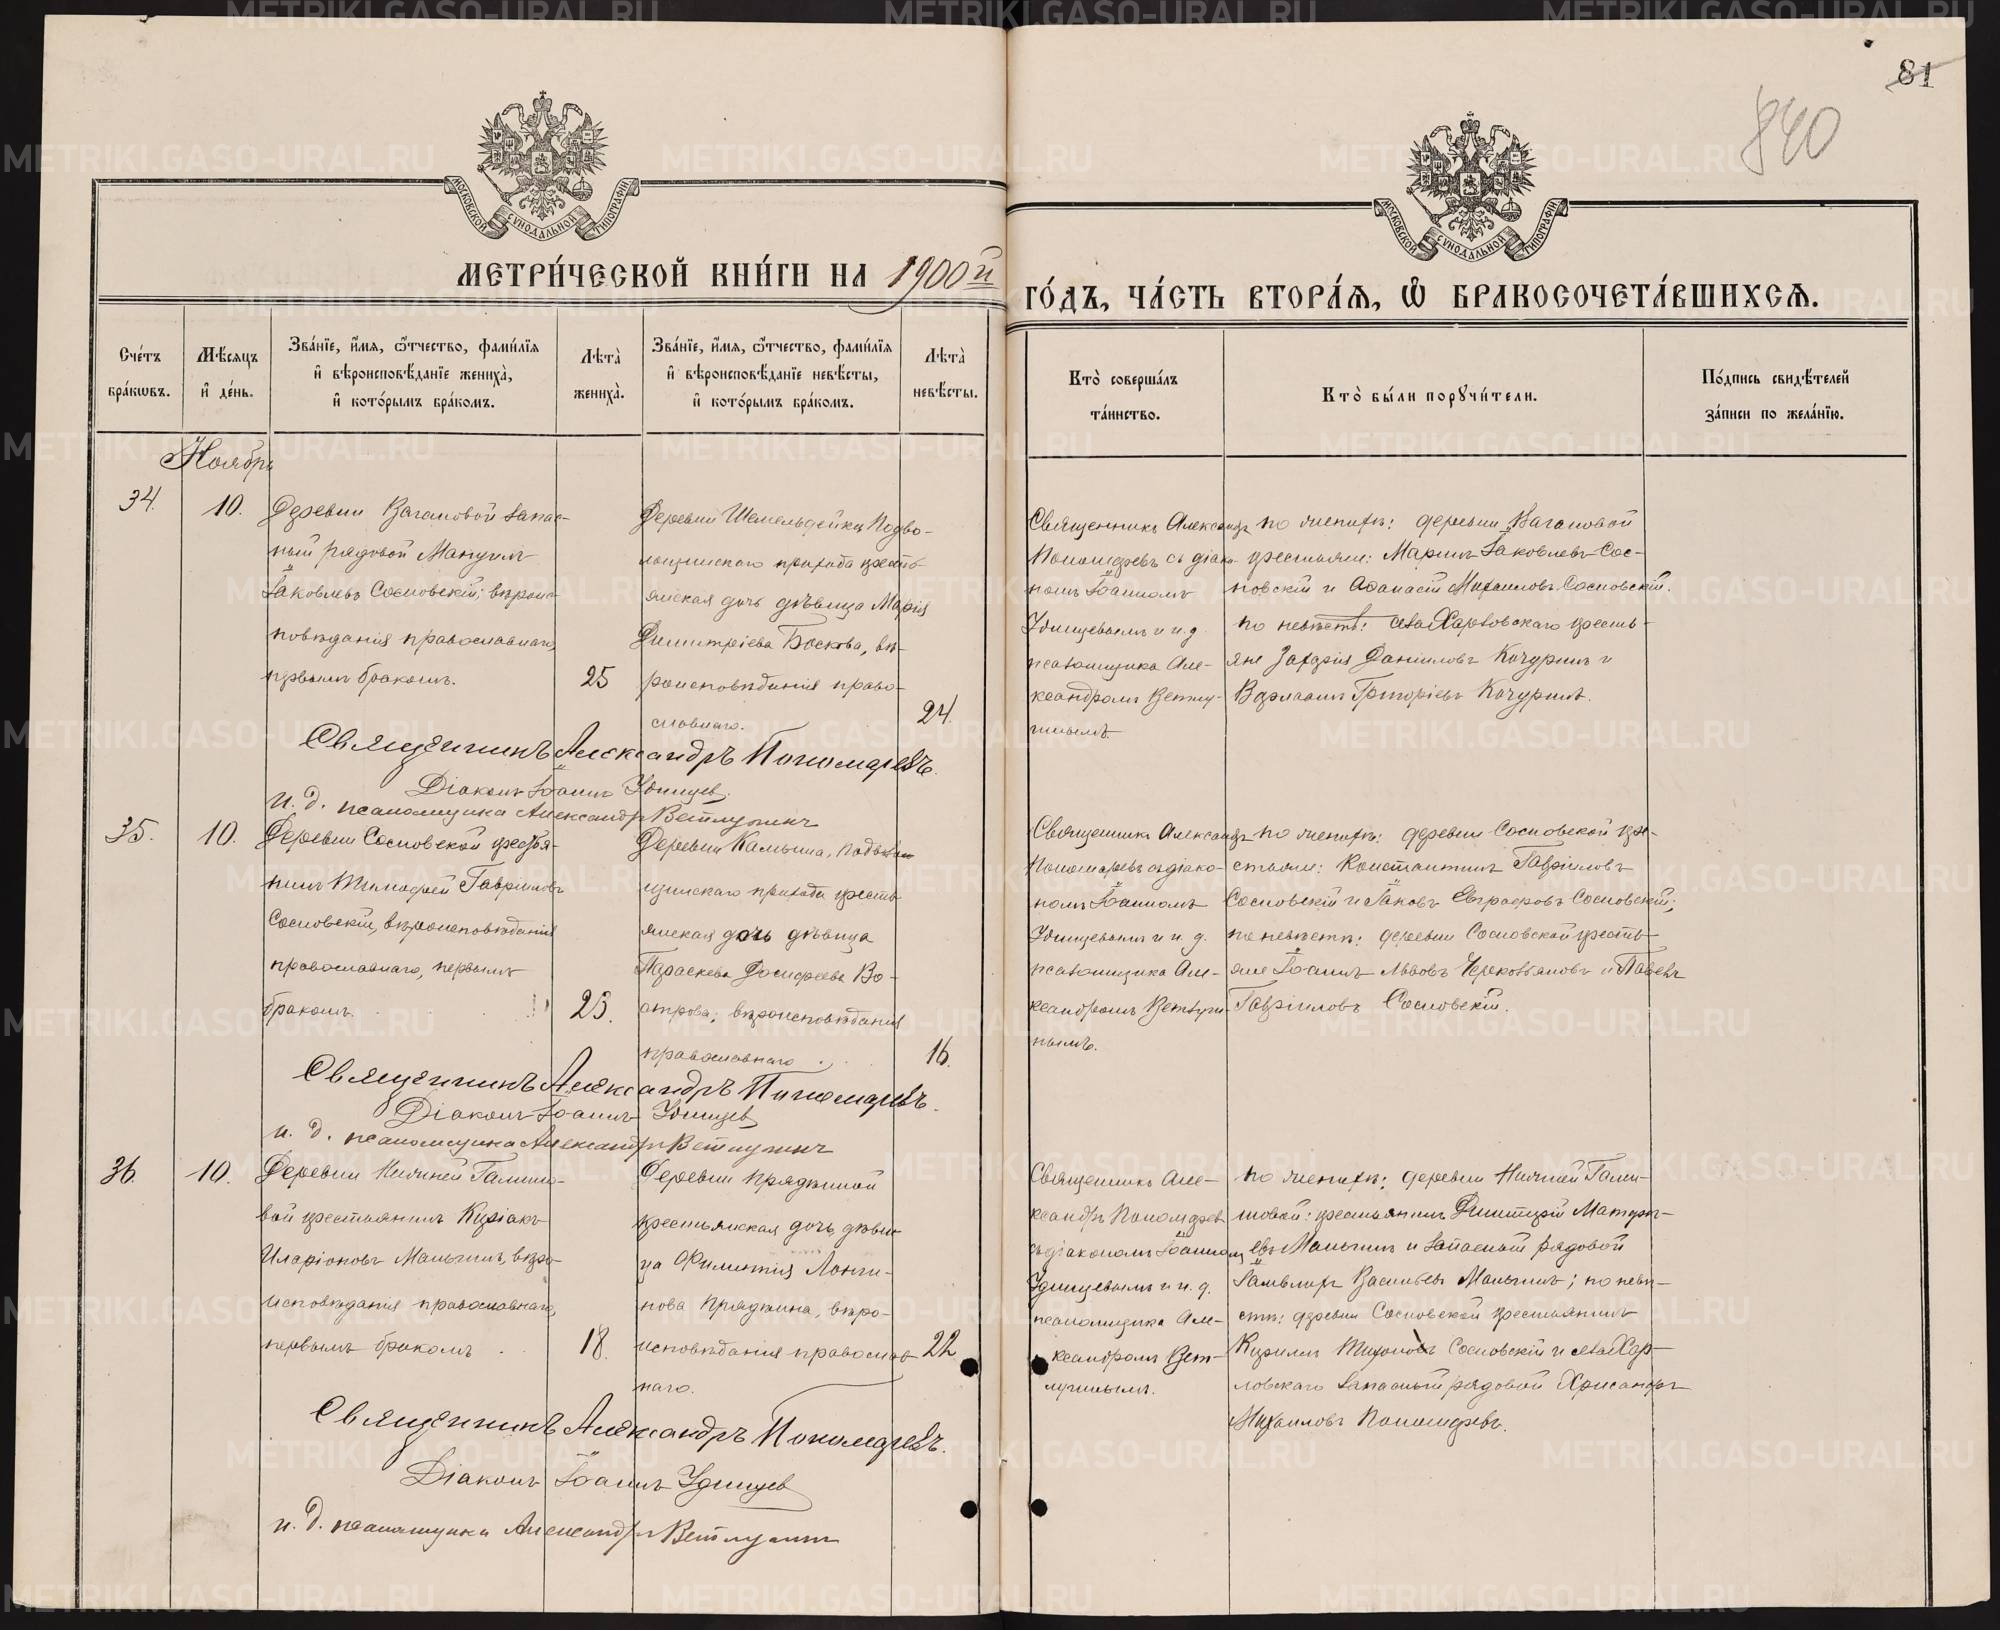 81
840
МОСКОВСКОЙ СѴНОДАЛЬНОЙ ТИПОГРАФІИ
МОСКОВСКОЙ СѴНОДАЛЬНОЙ ТИПОГРАФІИ
МЕТРИ́ЧЕСКОЙ КНИ́ГИ НА 1900й
ГО́ДЪ, ЧА́СТЬ ВТОРА́Ѧ, Ѽ БРАКОСОЧЕТА́ВШИХСѦ.
Сче́тъ бра́кωвъ.
Мѣ́сяцъ и҆ де́нь.
Зва́нїе, и҆́мя, ѻ҆́тчество, фами́лїя и҆ вѣроисповѣ́данїе жениха̀, и҆ кото́рымъ бра́комъ.
Лѣта̀ жениха̀.
Зва́нїе, и҆́мя, ѻ҆́тчество, фами́лїя и҆ вѣроисповѣ́данїе невѣ́сты, и҆ кото́рымъ бра́комъ.
Лѣта̀ невѣ́сты.
Кто̀ соверша́лъ та́инство.
Кто̀ бы́ли порꙋчи́тели.
По́дпись свидѣ́телей за́писи по жела́нїю.
Ноябрь
34.
10.
Деревни Вагановой запас-
ный рядовой Мануилъ
Іаковлевъ Сосновскій; вѣроис-
повѣданія православнаго,
первымъ бракомъ.
25
Деревни Шемельдейки Подво-
лошинскаго прихода кресть-
янская дочь дѣвица Марія
Димитріева Боскова, вѣ-
роисповѣданія право-
славнаго.
24.
Священникъ Александръ
Пономаревъ съ діако-
номъ Іоанномъ
Удинцевымъ и и. д.
псаломщика Але-
ксандромъ Ветлу-
гинымъ.
по женихѣ: деревни Вагановой
крестьяне: Маркъ Іаковлевъ Сос-
новскій и Аѳанасій Михаиловъ Сосновскій.
по невѣстѣ: села Харловскаго кресть-
яне Захарія Даніиловъ Качуринъ и
Варлаамъ Григоріевъ Качуринъ.
Священникъ Александръ Пономаревъ.
Діаконъ Іоаннъ Удинцев.
и. д. псаломщика Александръ Ветлугинъ
35.
10.
Деревни Сосновской крестья-
нинъ Тимофей Гавріиловъ
Сосновскій, вѣроисповѣданія
православнаго, первымъ
бракомъ.
23.
Деревни Камыша, Подволо-
шинскаго прихода кресть-
янская дочь дѣвица
Параскева Досифеева Во-
строва; вѣроисповѣданія
православнаго
16.
Священникъ Александръ
Пономаревъ съ діако-
номъ Іоанномъ
Удинцевымъ и и. д.
псаломщика Але-
ксандромъ Ветлуги-
нымъ.
по женихѣ: деревни Сосновской кре-
стьяне: Константинъ Гавріиловъ
Сосновскій и Іаковъ Евграфовъ Сосновскій;
по невѣстѣ: деревни Сосновской кресть-
яне Іоаннъ Львовъ и Павелъ
Гавріиловъ Сосновскій.
Священникъ Александръ Пономаревъ.
Діаконъ Іоаннъ Удинцев
и. д. псаломщика Александръ Ветлугинъ
36.
10.
Деревни Нижней Галиши-
вой крестьянинъ Киріакъ
Иларіоновъ Маньгинъ, вѣро-
исповѣданія православнаго,
первымъ бракомъ
18.
Деревни Прядкиной
крестьянская дочь, дѣви-
ца Филиппія Логги-
нова Прядкина, вѣро-
исповѣданія православ-
наго.
22.
Священникъ Але-
ксандръ Пономарев
съ діакономъ Іоанном
Удинцевымъ и и. д.
псаломщика Але-
ксандромъ Вет-
лугинымъ.
по женихѣ: деревни Нижней Гали-
шовой: крестьянинъ Димитрій Матѳѣ-
евъ Маньгинъ и запасный рядовой
Васильевъ Маньгинъ; по невѣ-
стѣ: деревни Сосновской крестьянинъ
Кириллъ Тихоновъ Сосновскій и села Хар-
ловскаго запасный рядовой Хрисанфъ
Михаиловъ Пономаревъ.
Священникъ Александръ Пономаревъ.
Діаконъ Іоаннъ Удинцев
и. д. псаломщика Александръ Ветлугинъ
METRIKI.GASO-URAL.RU